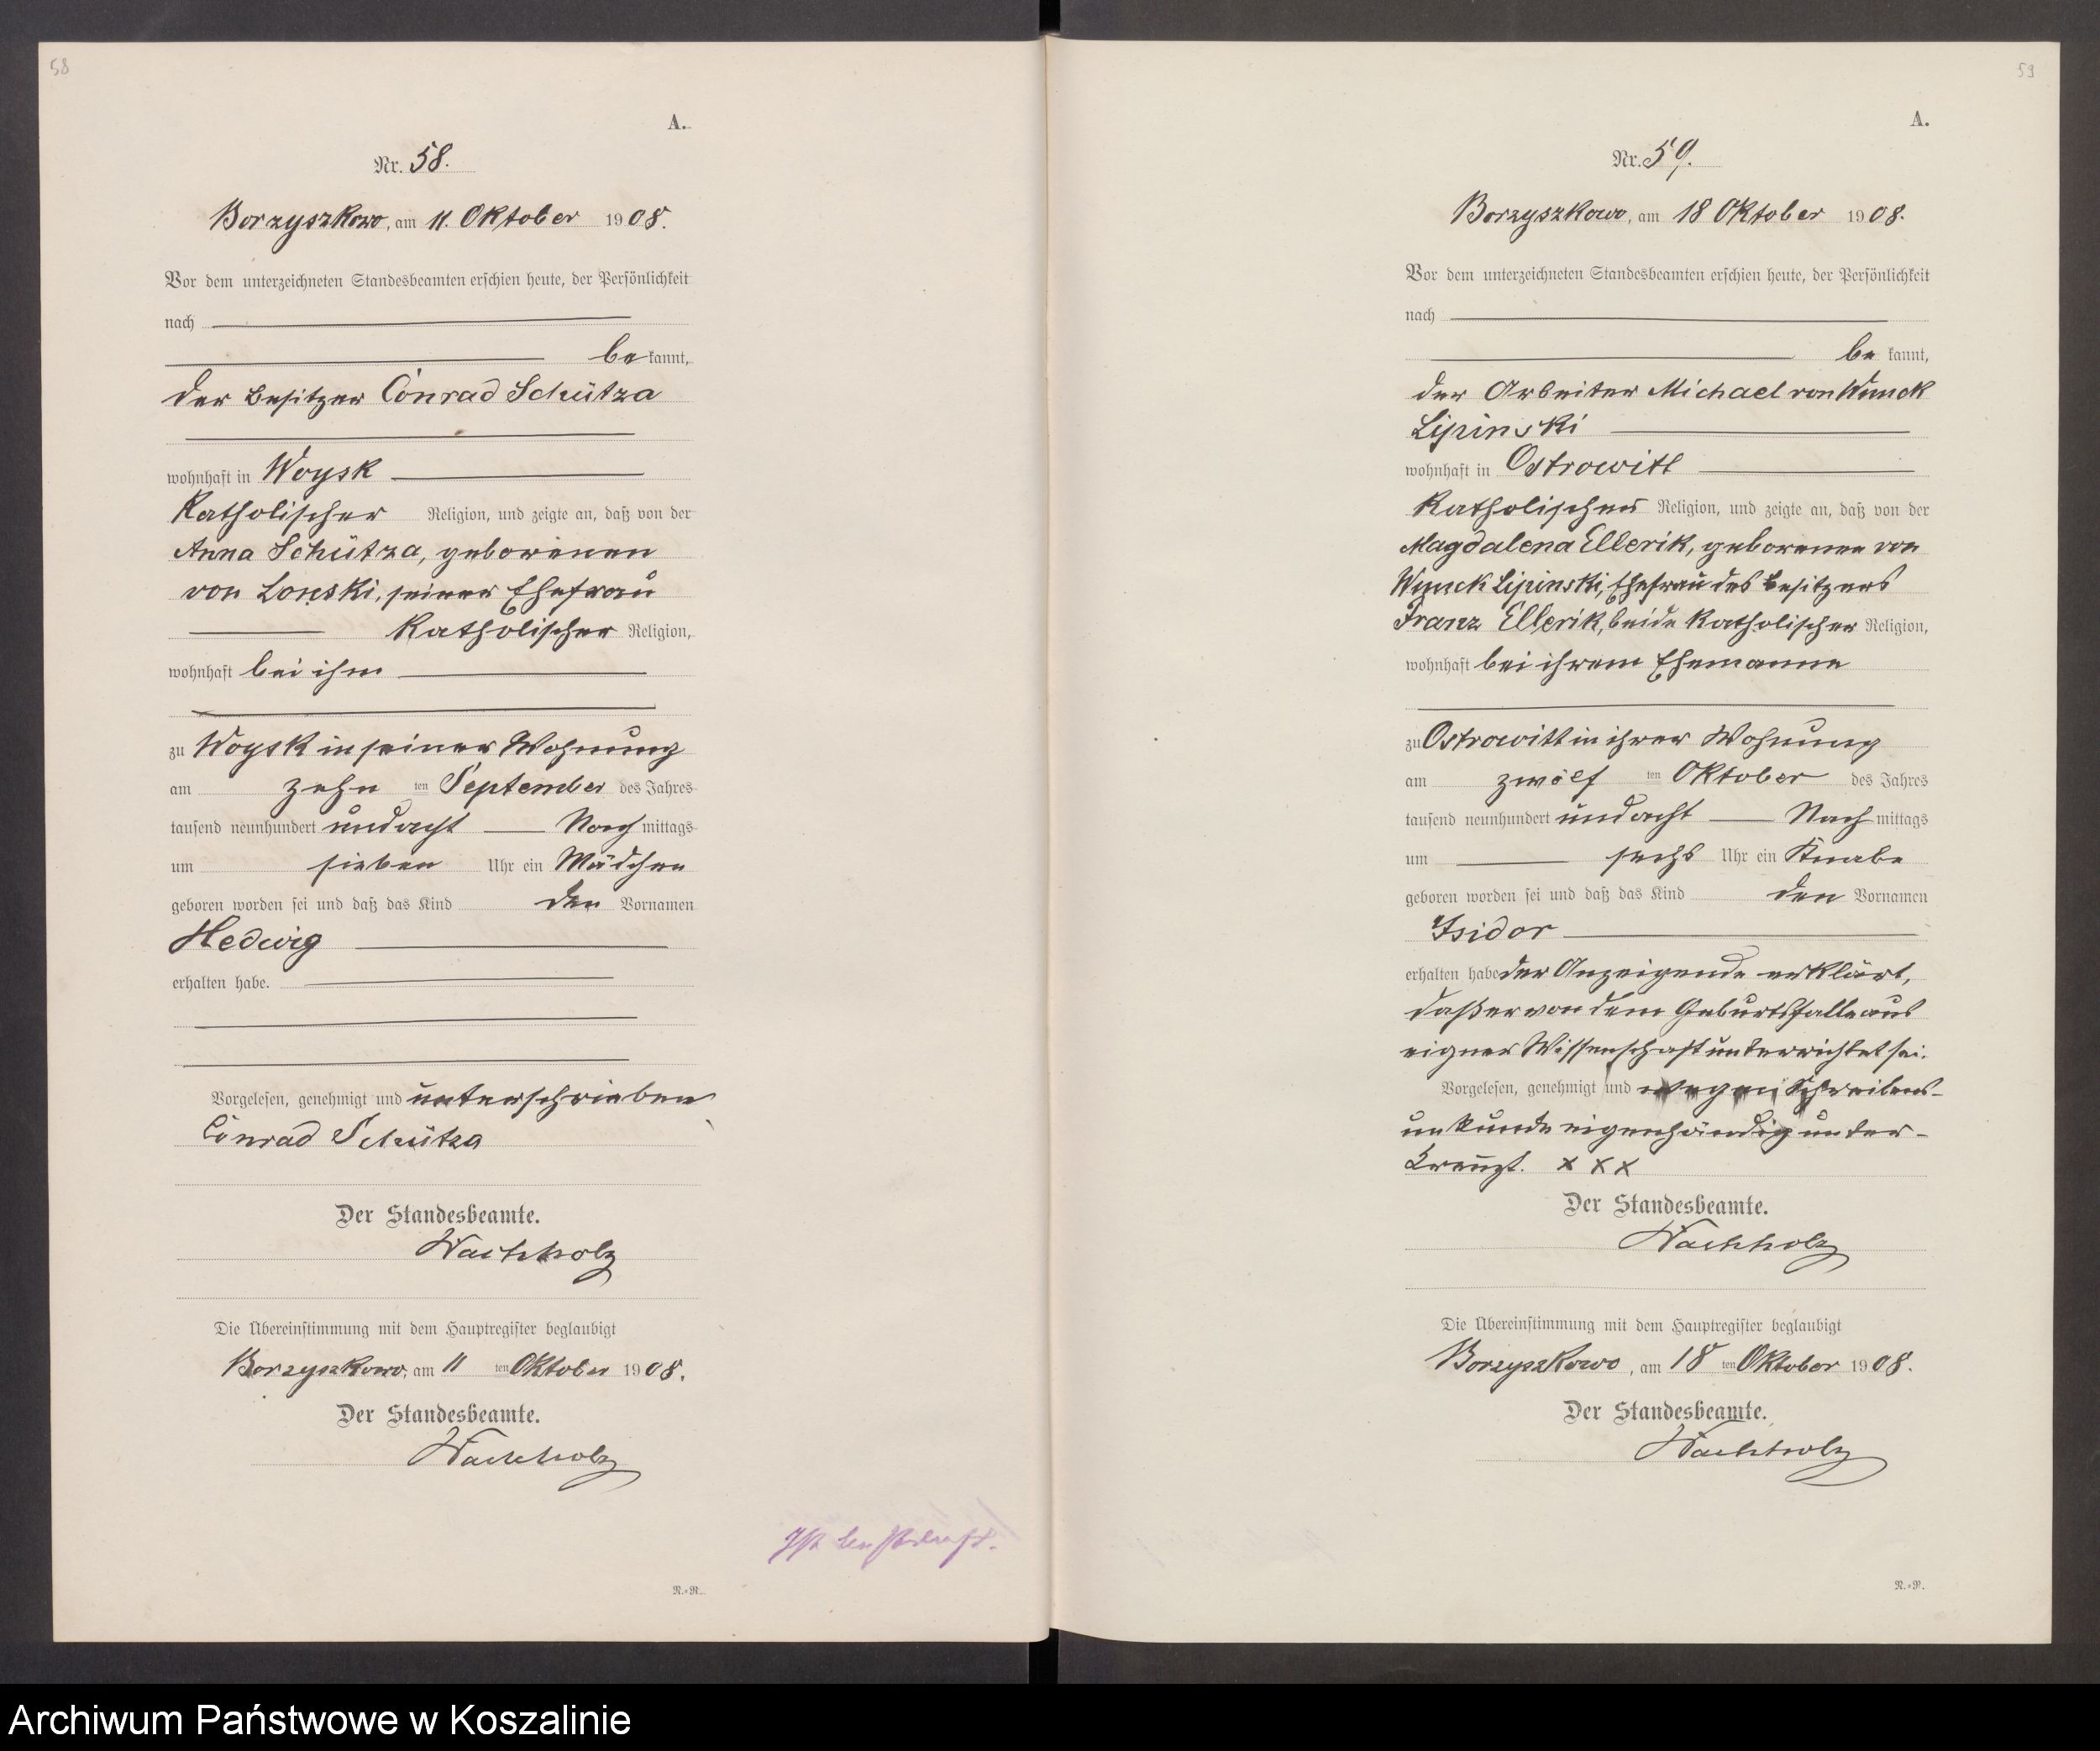 58
A.
Nr. 58.
Borzyszkowo, am 11. Oktober 1908.
Vor dem unterzeichneten Standesbeamten erschien heute, der Persönlichkeit
nach
be kannt,
der Besitzer Conrad Schütza
wohnhaft in Woysk
Katholischer Religion, und zeigte an, daß von der
Anna Schütza, geborenen
von Lonski, seiner Ehefrau
Katholischer Religion,
wohnhaft bei ihm
zu Woysk in seiner Wohnung
am zehn ten September des Jahres
tausend neunhundert und acht Nach mittags
um sieben Uhr ein Mädchen
geboren worden sei und daß das Kind den Vornamen
Hedwig
erhalten habe.
Vorgelesen, genehmigt und unterschrieben
Conrad Schütza
Der Standesbeamte.
Wachholz
Die Übereinstimmung mit dem Hauptregister beglaubigt
Borzyszkowo, am 11 ten Oktober 1908.
Der Standesbeamte.
Wachholz
N.=R.
59
A.
Nr. 59.
Borzyszkowo, am 18 Oktober 1908.
Vor dem unterzeichneten Standesbeamten erschien heute, der Persönlichkeit
nach
be kannt,
der Arbeiter Michael von Wnuck
Lipinski
wohnhaft in Ostrowitt
Katholischer Religion, und zeigte an, daß von der
Magdalena Ellerik, geborenen von
Wnuck Lipinski, Ehefrau des Besitzers
Franz Ellerik, beide Katholischer Religion,
wohnhaft bei ihrem Ehemanne
zu Ostrowitt in ihrer Wohnung
am zwölf ten Oktober des Jahres
tausend neunhundert und acht Nach mittags
um sechs Uhr ein Knabe
geboren worden sei und daß das Kind den Vornamen
Isidor
erhalten habe der Anzeigende erklärt,
daß er von dem Geburtsfalle aus
eigner Wissenschaft unterrichtet sei.
Vorgelesen, genehmigt und wegen Schreibens-
unkunde eigenhändig unter-
kreuzt. x x x
Der Standesbeamte.
Wachholz
Die Übereinstimmung mit dem Hauptregister beglaubigt
Borzyszkowo, am 18 ten Oktober 1908.
Der Standesbeamte.
Wachholz
N.=R.
Archiwum Państwowe w Koszalinie